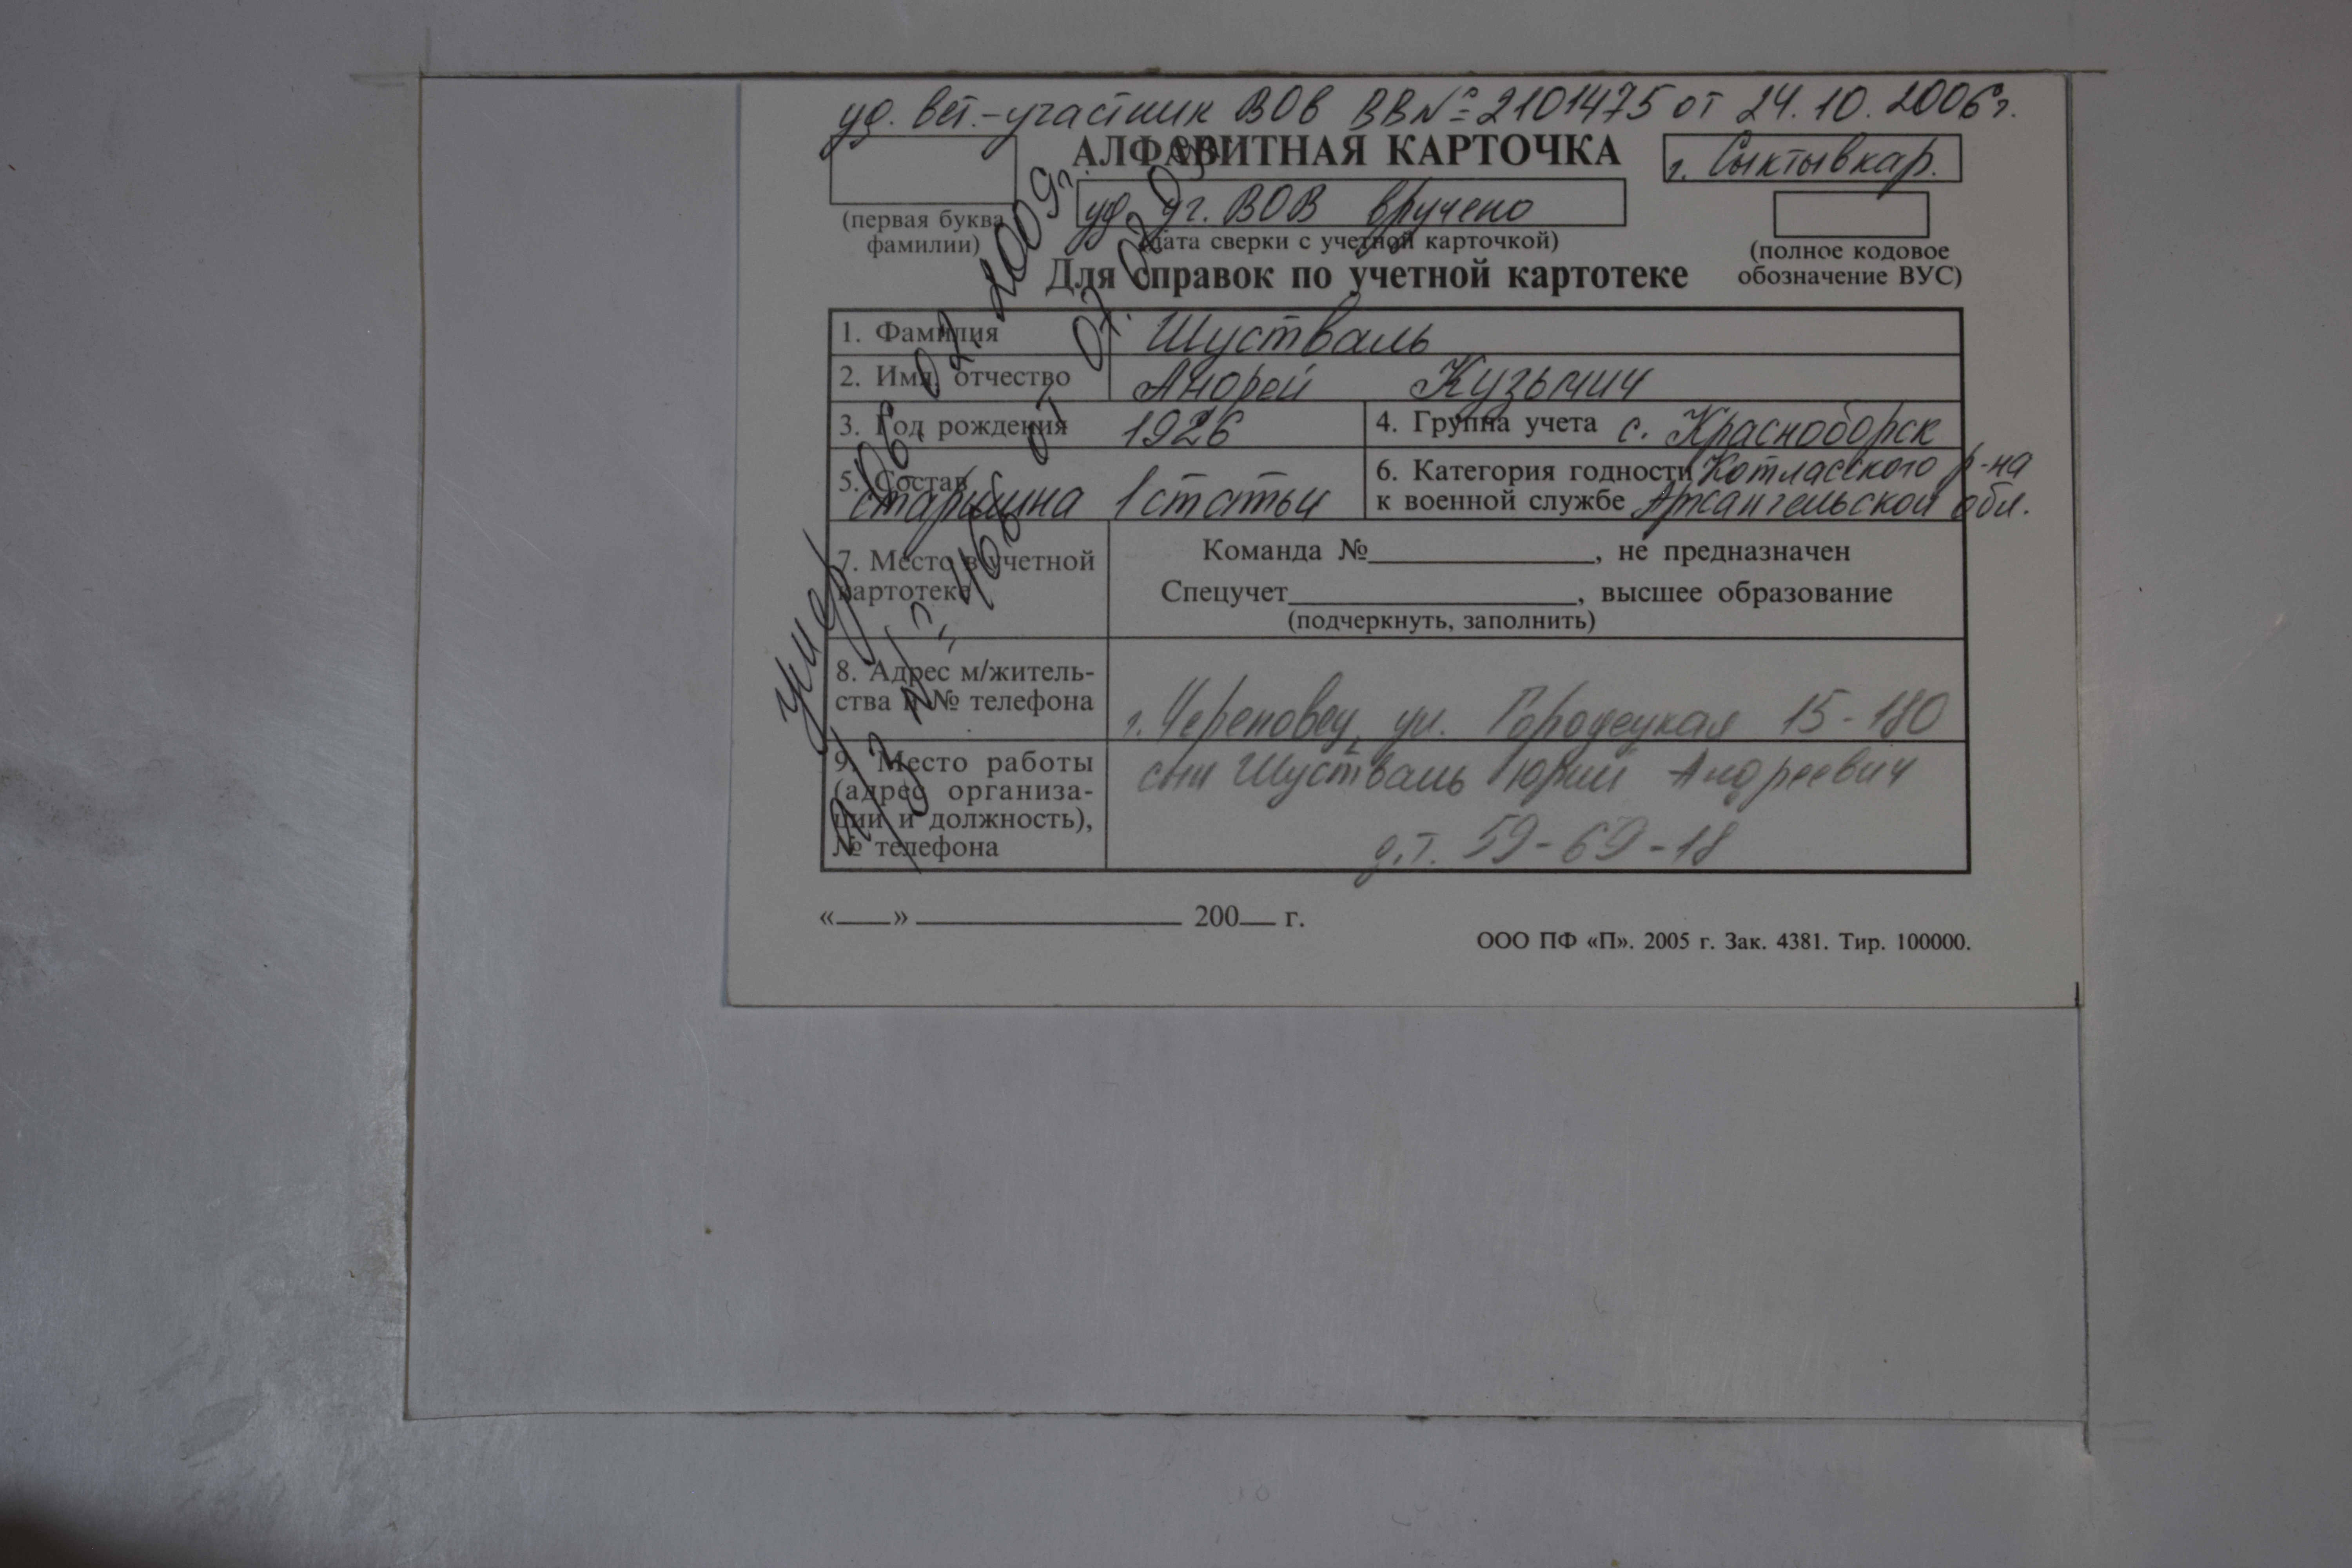 уд. вет.-участник ВОв ВВ № 2101475 от 24.10.2006г.
АЛФАВИТНАЯ КАРТОЧКА
г. Сыктывкар.
уд уч. ВОВ вручено
(первая буква фамилии)
(дата сверки с учетной карточкой)
(полное кодовое обозначение ВУС)
Для справок по учетной картотеке
1. Фамилия Шустваль
2. Имя, отчество Андрей Кузьмич
3. Год рождения 1926
4. Группа учета с. Красноборск
5. Состав старшина 1 статьи
6. Категория годности Котласского р-на
к военной службе Архангельской обл.
7. Место в учетной картотеке
Команда №, не предназначен
Спецучет, высшее образование
(подчеркнуть, заполнить)
8. Адрес м/жительства и № телефона
г. Череповец, ул. Городецкая 15-180
9. Место работы (адрес организации и должность), № телефона
сын Шустваль Юрий Андреевич
д.т. 59-69-18
умер 06.02.2009г.
а/з № 468 от 07.02.09г.
«___» 200__ г.
ООО ПФ «П». 2005 г. Зак. 4381. Тир. 100000.